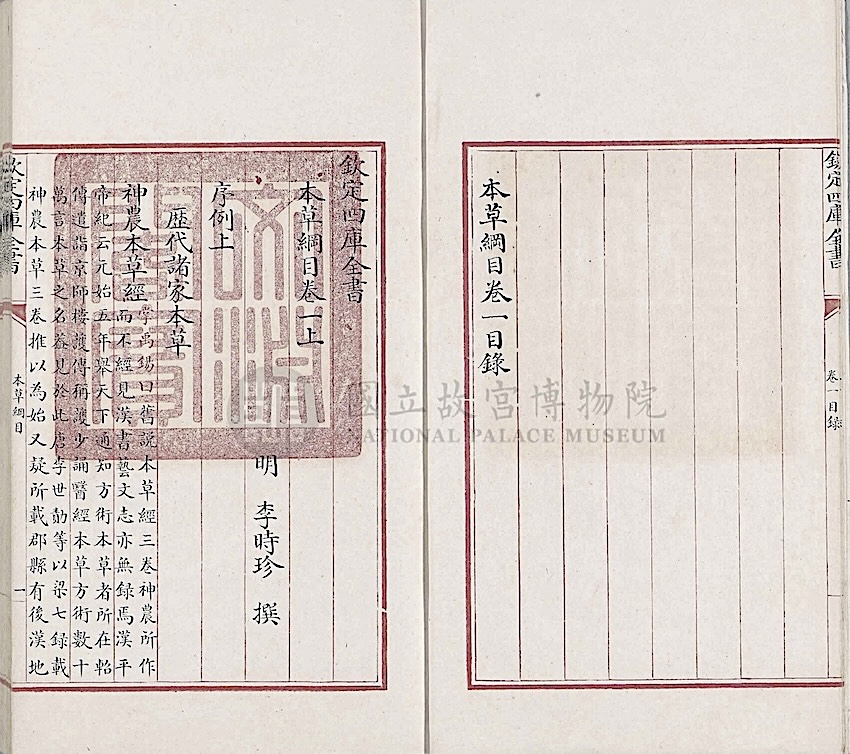 欽定四庫全書
卷一目錄
本草綱目卷一目錄
欽定四庫全書
本草綱目卷一上
明 李時珍 撰
序例上
歷代諸家本草
神農本草經
掌禹錫曰舊說本草經三卷神農所作
而不經見漢書藝文志亦無録焉漢平
帝紀云元始五年舉天下通知方術本草者所在軺
傳遣詣京師樓護傳稱護少誦醫經本草方術數十
萬言本草之名蓋見於此唐李世勣等以梁七録載
神農本草三卷推以為始又疑所載郡縣有後漢地
欽定四庫全書
本草綱目
一
文淵閣寶
國立故宮博物院
NATIONAL PALACE MUSEUM